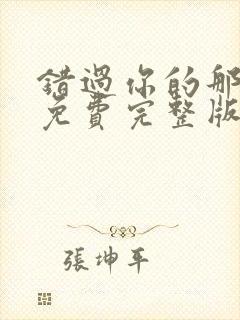 錯過你的那
免費完整版
張坤平